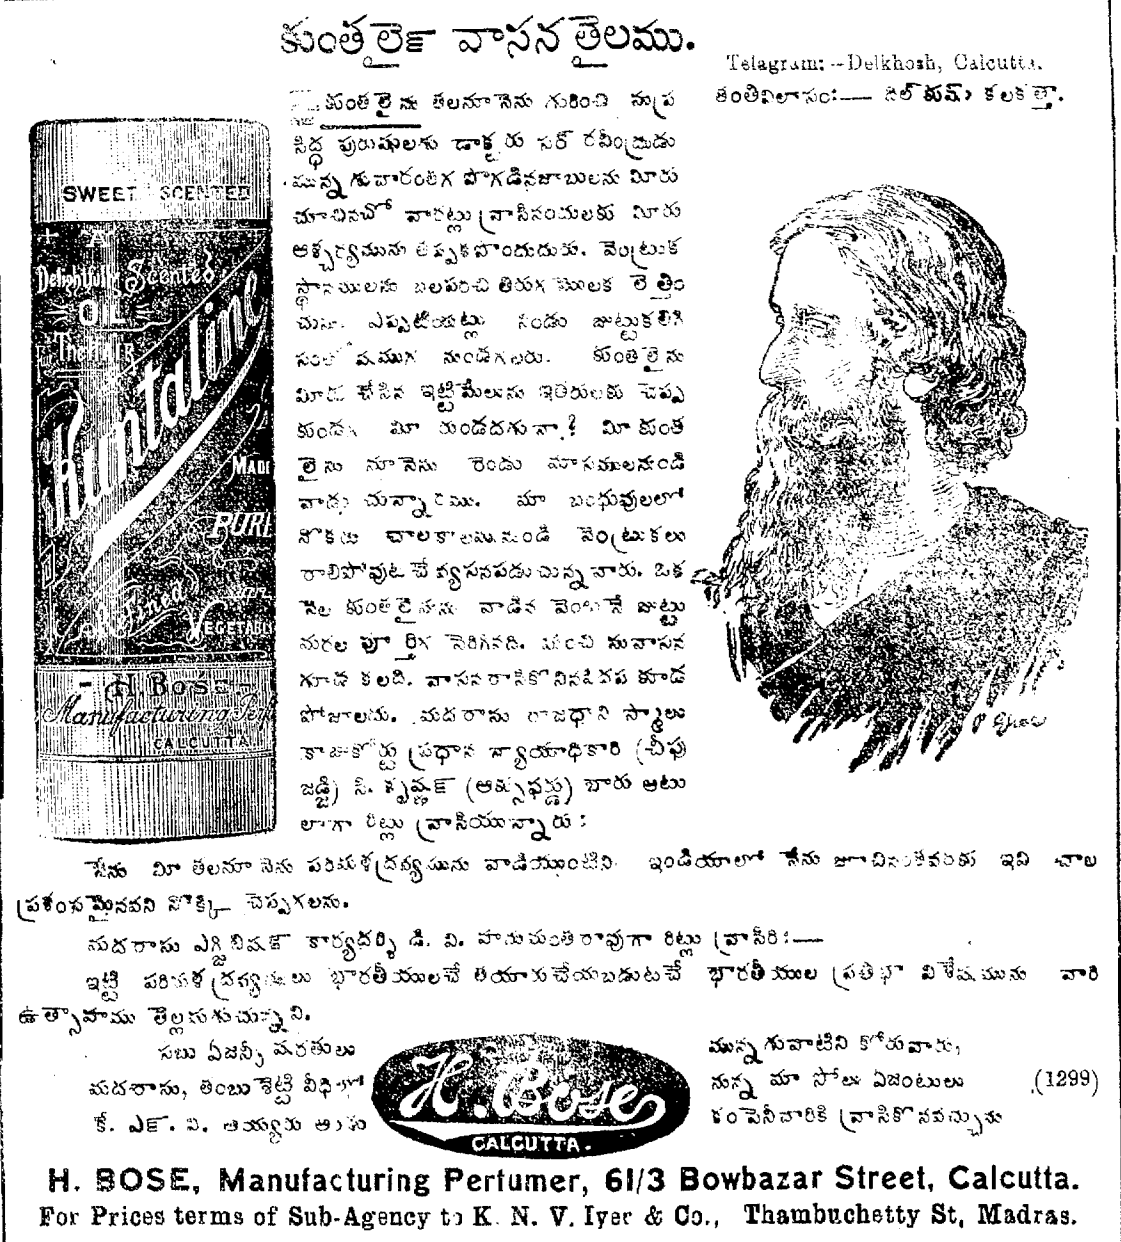 కుంతలైన్ వాసన తైలము.
Telagram:--Delkhosh, Calcutta.
తంతివిలాసం:— డిల్ కుష్ కలకత్తా.
SWEET SCENTED
Delightfully Scented
OIL
Kuntaline
MADE
PURE
Refined
VEGETABLE
H. BOSE
Manufacturing
CALCUTTA
కుంతలైను తలనూనెను గురించి సుప్ర
సిద్ధ పురుషులగు డాక్టరు సర్ రవీంద్రుడు
మున్నగువారంతగ పొగడినజాబులను మీరు
చూచినచో వారట్లు వ్రాసినందులకు మీరు
ఆశ్చర్యమును తప్పకపొందుదురు. వెంట్రుక
స్థానములను బలపరచి తిరుగ మొలక లెత్తిం
చును. ఎప్పటియట్లు నిండు జుట్టుకలిగి
సంతోషముగ నుండగలరు. కుంతలైను
మీరు చేసిన ఇట్టిమేలును ఇతరులకు చెప్ప
కుండ మీ రుండదగునా? మీ కుంత
లైను నూనెను రెండు మాసములనుండి
వాడుచున్నారము. మా బంధువులలో
నొకరు చాలకాలమునుండి వెంట్రుకలు
రాలిపోవుటచే వ్యసనపడుచున్నవారు. ఒక
నెల కుంతలైనును వాడిన వెంటనే జుట్టు
మరల పూర్తిగ పెరిగినది. మంచి సువాసన
గూడ కలది. వాసనరానికొనినతలప కూడ
పోజాలదు. మదరాసు రాజధాని స్మాలు
కాజుకోర్టు ప్రధాన న్యాయాధికారి (చీఫు
జడ్జి) సి. కృష్ణన్ (ఆక్సుఫర్డు) వారు ఆటు
లాగా రిట్లు వ్రాసియున్నారు:
నేను మీ తలనూనెను పరిమళద్రవ్యమును వాడియుంటిని ఇండియాలో నేను జూచినంతవరకు ఇవి చాల
ప్రశంసమైనవని నొక్కి చెప్పగలను.
మదరాసు ఎగ్జిబిషన్ కార్యదర్శి డి. వి. హనుమంతరావుగా రిట్లు వ్రాసిరి:—
ఇట్టి పరిమళద్రవ్యములు భారతీయులచే తయారుచేయబడుటచే భారతీయుల ప్రతిభా విశేషమును వారి
ఉత్సాహము తెల్లపరుచుచున్నవి.
సబు ఏజన్సీ షరతులు
మదరాసు, తంబుశెట్టి వీధిలో
కే. ఎన్. వి. అయ్యరు అండు
H. Bose
CALCUTTA.
మున్నగువాటిని కోరువారు,
నున్న మా సోలు ఏజంటులు (1299)
కంపెనీవారికి వ్రాసికొనవచ్చును
H. BOSE, Manufacturing Perfumer, 61/3 Bowbazar Street, Calcutta.
For Prices terms of Sub-Agency to K. N. V. Iyer & Co., Thambuchetty St, Madras.